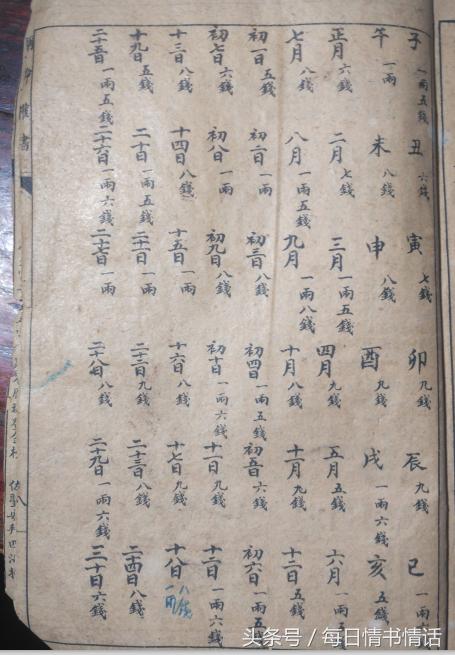 子 一兩五錢 丑 六錢 寅 七錢 卯 九錢 辰 九錢 巳 一兩
午 一兩 未 八錢 申 八錢 酉 九錢 戌 一兩六錢 亥 五錢
正月 六錢 二月 七錢 三月 一兩五錢 四月 九錢 五月 五錢 六月 一兩五
七月 八錢 八月 一兩五錢 九月 一兩八錢 十月 八錢 十一月 九錢 十二月 五錢
初一日 五錢 初二日 一兩 初三日 八錢 初四日 一兩五錢 初五日 六錢 初六日 一兩五
初七日 六錢 初八 一兩 初九日 八錢 初十日 一兩六錢 十一日 九錢 十二日 一兩六錢
十三日 八錢 十四日 八錢 十五日 一兩 十六日 八錢 十七日 九錢 十八日 八錢 一兩
十九日 五錢 二十日 一兩五錢 二十一日 一兩 二十二日 九錢 二十三日 八錢 二十四日 八錢
二十五日 一兩五錢 二十六日 一兩六錢 二十七日 一兩 二十八日 八錢 二十九日 一兩六錢 三十日 六錢
頭条号 / 每日情书情话